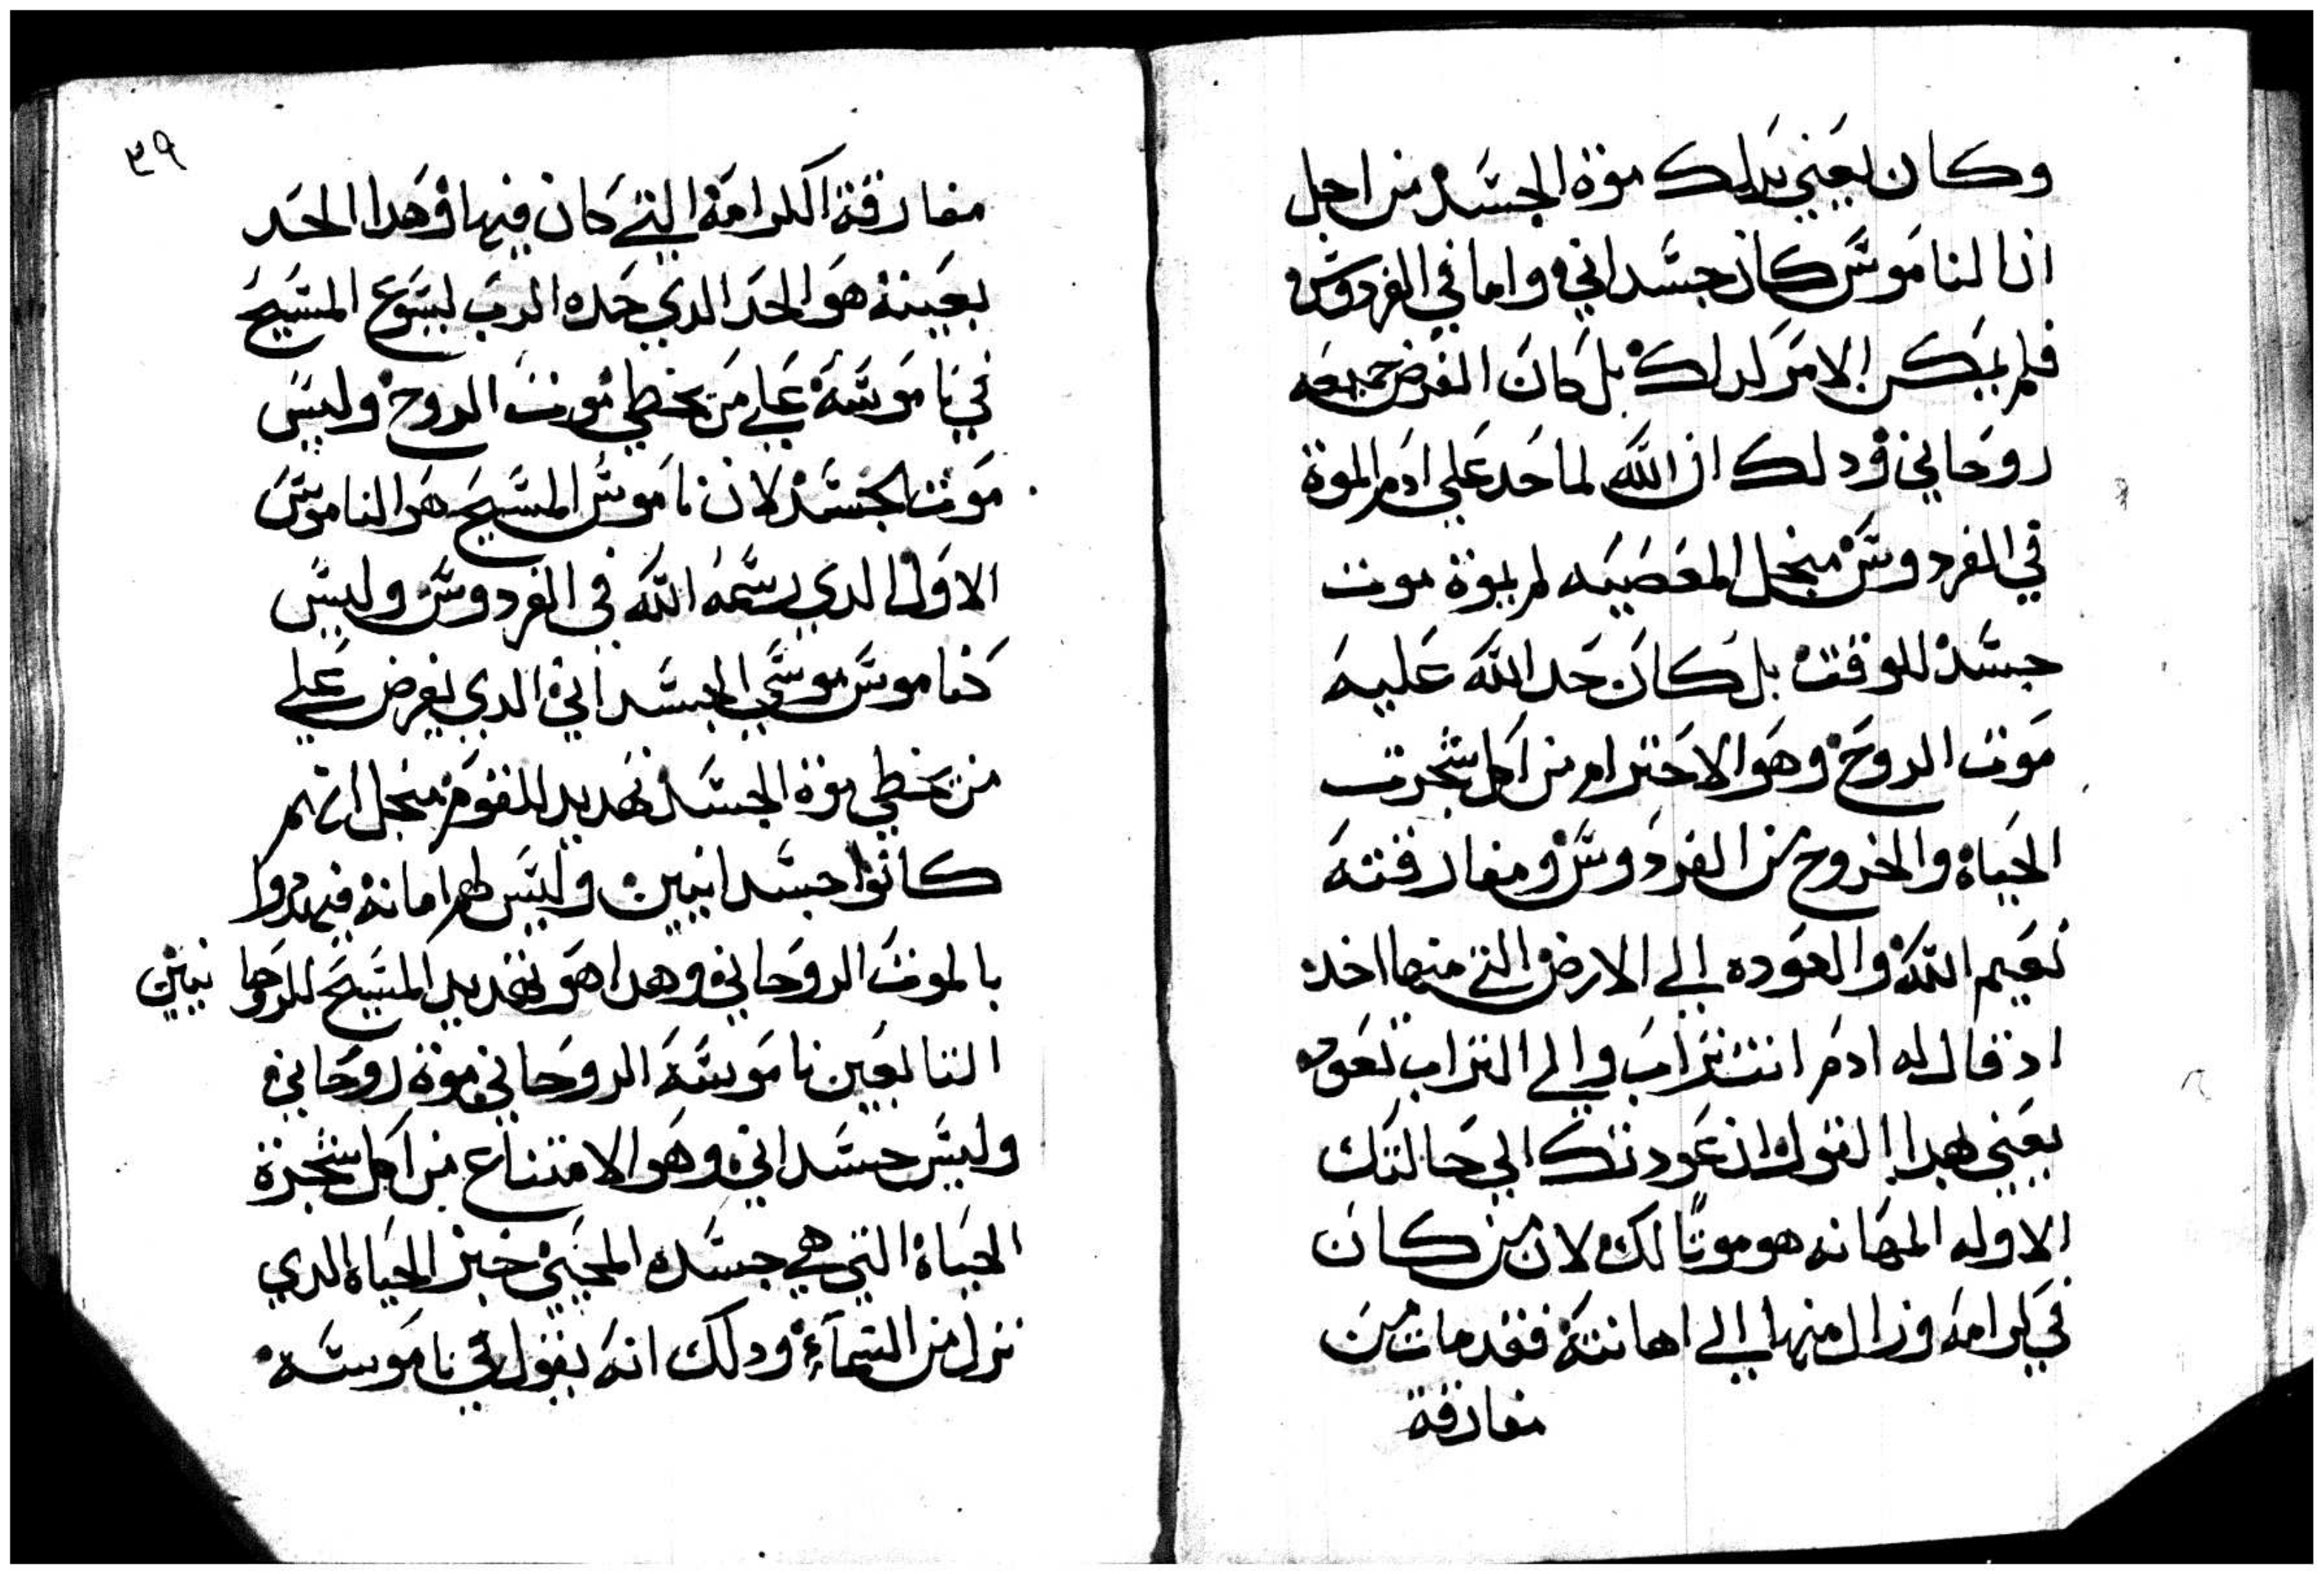 وكان يعني بدلك موة الجسد من اجل
ان الناموس كان جسداني واما في الفردوس
فلم يكن الامر كدلك بل كان الفرض جميعه
روحاني ودلك ان الله لما حد علي ادم الموة
في الفردوس منجل المعصيه لم يموة موت
جسد للوقت بل كان حد الله عليه
موت الروح وهو الاحترام من اكل شجرت
الحياة والخروج من الفردوس ومفارقته
نعيم الله والعوده الي الارض التي منها اخد
اد قال له ادم انت تراب والي التراب تعود
يعني بهدا القول ان عودتك الي حالتك
الاوله المهانه هو موتا لك لان من كان
في كرامه وزال منها الي اهانته فقد مات من
مفارقة
٣٩
مفارقة الكرامة التي كان فيها وهدا الحد
بعينه هو الحد الدي حده الرب يسوع المسيح
في ناموسه علي من يخطي موت الروح وليس
موت الجسد لان ناموس المسيح هو الناموس
الاول الدي رسمه الله في الفردوس وليس
كناموس موسي الجسداني الدي يفرض علي
من يخطي موة الجسد تهديد للقوم منجل انهم
كانوا جسدانيين وليس لهم امانة فيهددوا
بالموت الروحاني وهدا هو تهديد المسيح للروحانيين
التابعين ناموسه الروحاني موة روحاني
وليس جسداني وهو الامتناع من اكل شجرة
الحياة التي هي جسده المحيي خبز الحياه الدي
نزل من السماء ودلك انه يقول في ناموسه